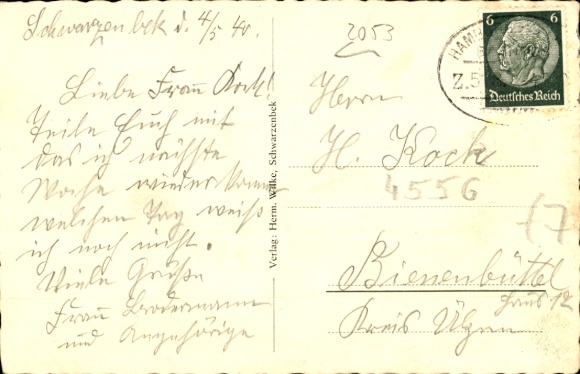 Schwarzenbek d. 4/5 40.
Liebe Frau Kock!
Teile Euch mit
das ich nächste
Woche wieder komme
welchen Tag weiß
ich noch nicht.
Viele Grüße
Frau Bodermann
und Angehörige
Verlag: Herm. Wilke, Schwarzenbek
2053
6 6
Deutsches Reich
HAMB
Z.5
Herrn
H. Kock
4556
(7
Bienenbüttel
Haus 12
Kreis Ülzen